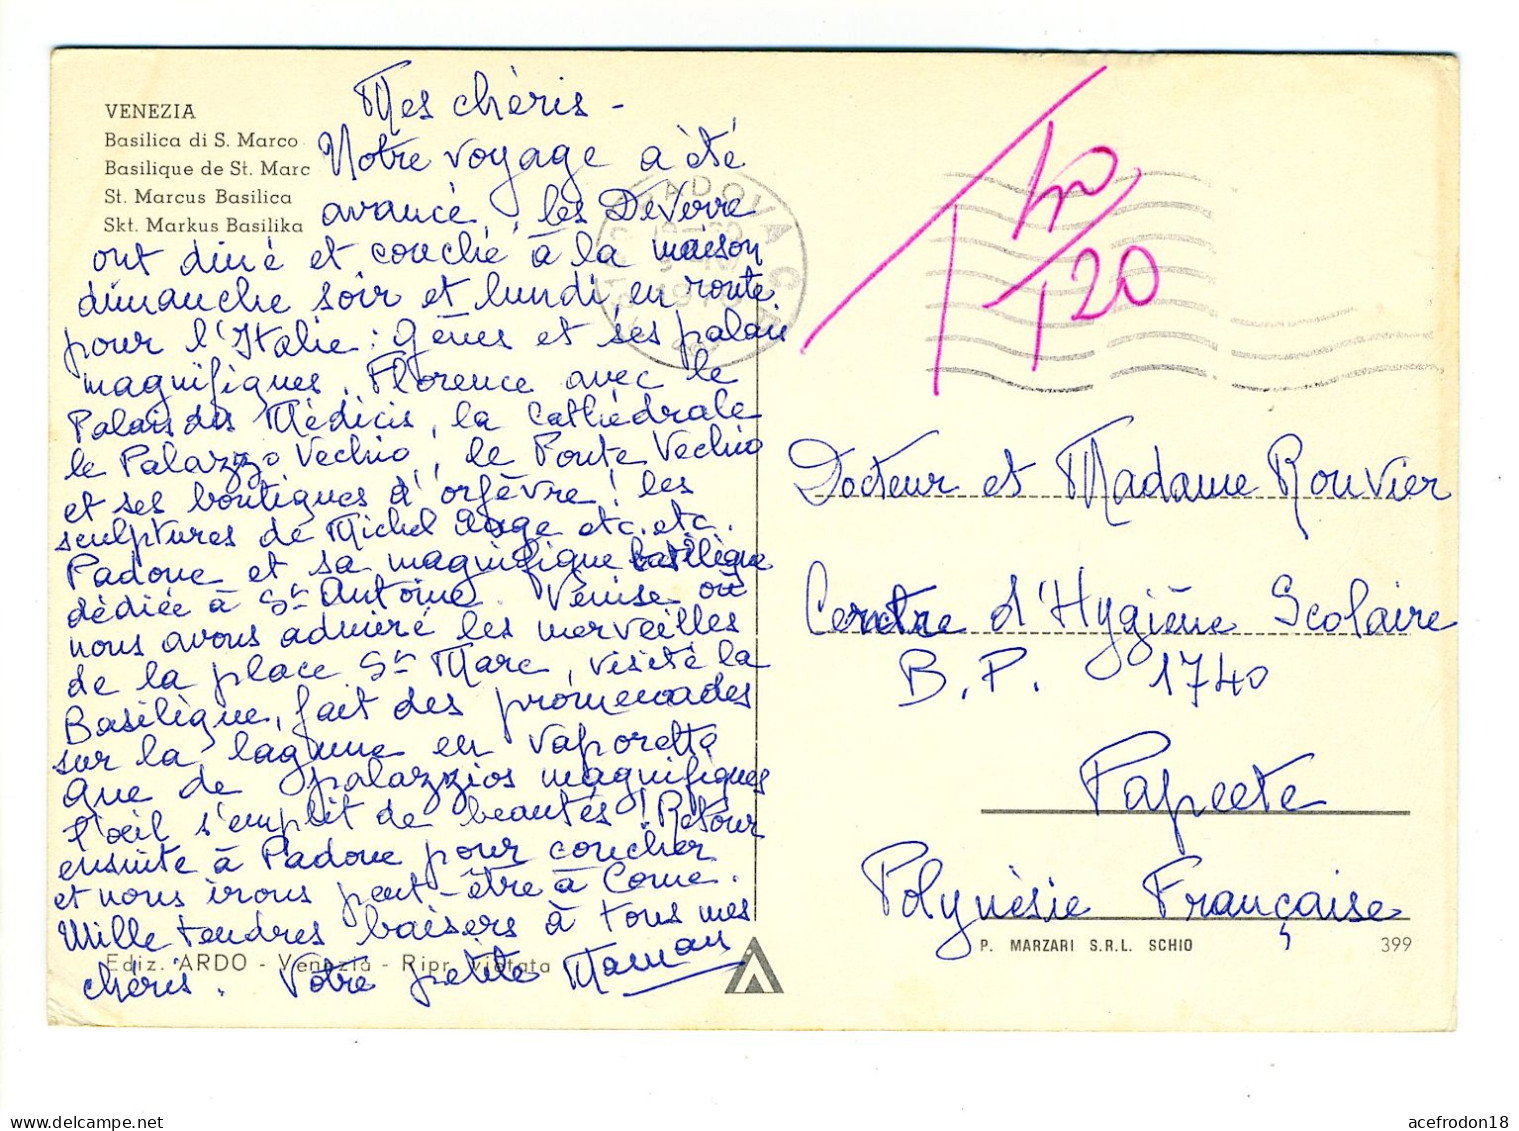 VENEZIA
Basilica di S. Marco
Basilique de St. Marc
St. Marcus Basilica
Skt. Markus Basilika
Mes chéris -
Notre voyage a été
avancé, les DeVerre
ont dîné et couché à la maison
dimanche soir et lundi en route
pour l'Italie : Gênes et ses palais
magnifiques, Florence avec le
Palais des Médicis, la Cathédrale
le Palazzo Vechio, le Ponte Vechio
et ses boutiques d'orfèvre ! les
sculptures de Michel Ange etc. etc.
Padoue et sa magnifique basilique
dédiée à St Antoine. Venise où
nous avons admiré les merveilles
de la place St Marc, visité la
Basilique, fait des promenades
sur la lagune en vaporetto
Que de palazzios magnifiques
l'oeil s'emplit de beautés ! Retour
ensuite à Padoue pour coucher
et nous irons peut-être à Come.
Mille tendres baisers à tous mes
chéris. Votre petite Maman
Ediz. ARDO - Venezia - Ripr. vietata
PADOVA C.P.
1970
T 40
T 20
Docteur et Madame Rouvier
Centre d'Hygiène Scolaire
B.P. 1740
Papeete
Polynésie Française
P. MARZARI S.R.L. SCHIO
399
acefrodon18
delcampe.net